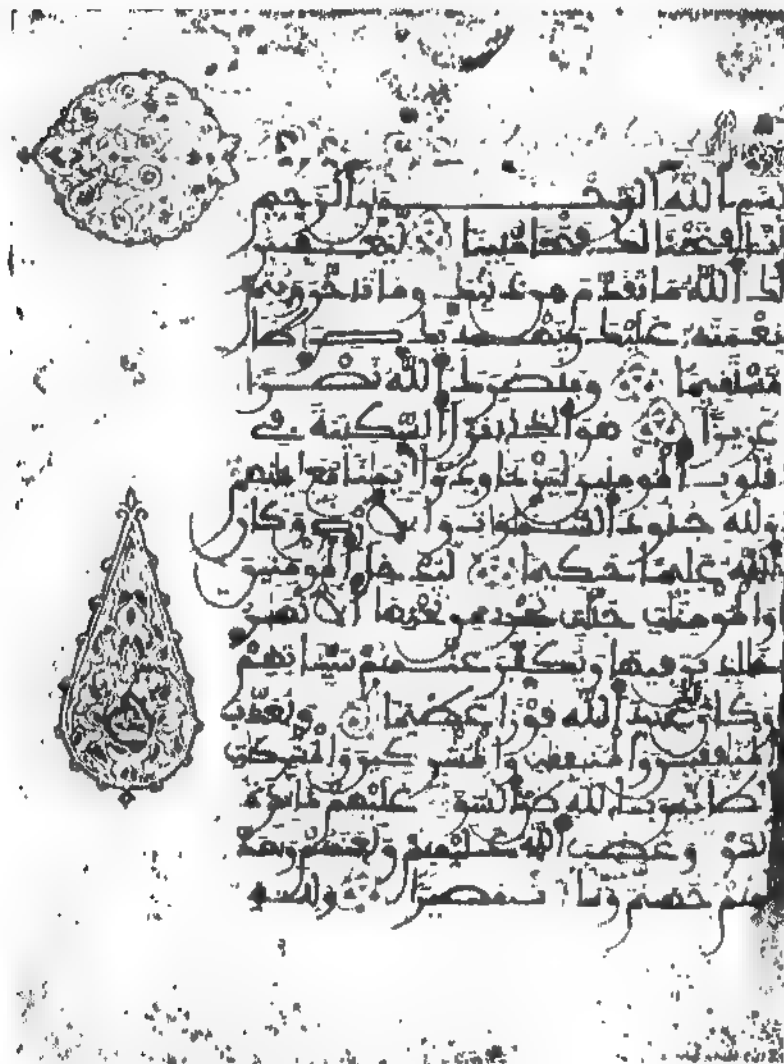 بسم الله الرحمن الرحيم
انا فتحنا لك فتحا مبينا ليغفر
لك الله ما تقدم من ذنبك وما تاخر ويتم
نعمته عليك ويهديك صراطا
مستقيما وينصرك الله نصرا
عزيزا هو الذي انزل السكينة في
قلوب المومنين ليزدادوا ايمانا مع ايمانهم
ولله جنود السموات والارض وكان
الله عليما حكيما ليدخل المومنين
والمومنت جنت تجري من تحتها الانهر
خلدين فيها ويكفر عنهم سياتهم
وكان عند الله فوزا عظيما ويعذب
المنفقين والمنفقت والمشركين والمشركت
الظانين بالله ظن السوء عليهم دائرة
السوء وغضب الله عليهم ولعنهم واعد
لهم جهنم وساءت مصيرا ولله